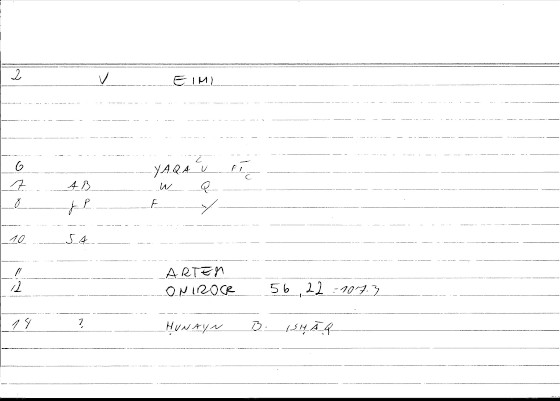 2 V EIMI
6 YARAʿU FĪ
7 AB W Q
8 ȷP F Y
10 SA
11 ARTEM
12 ONIROCR 56,22 = 107.3
14 ? ḤUNAYN B. ISḤĀQ